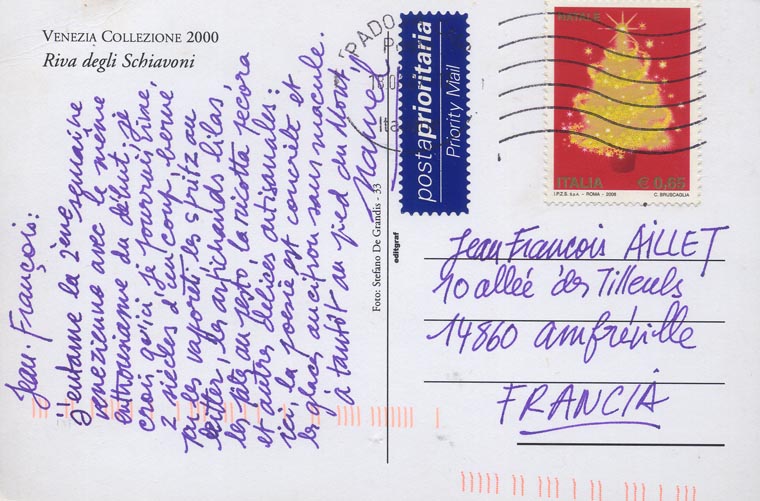 VENEZIA COLLEZIONE 2000
Riva degli Schiavoni
Jean-François:
J'entame la 2ème semaine
vénézienne avec le même
enthousiasme du début. Je
crois qu'ici je pourrai vivre,
2 siècles d'un coup! Entre
les vaporetti, les spritz au
bitter, les artichauds lilas,
les pâte au pesto, la ricotta pecora
et autres délices artisanales:
ici, la poésie est concrète et
les glaces au citron sans macule.
à tantôt au pied du mont
Foto: Stefano De Grandis - 33
editgraf
postaprioritaria
Priority Mail
PADO
NATALE
ITALIA € 0,65
I.P.Z.S. S.p.A. - ROMA - 2008 C. BRUSCAGLIA
Jean François AILLET
10 allée des Tilleuls
14860 Amfréville
FRANCIA